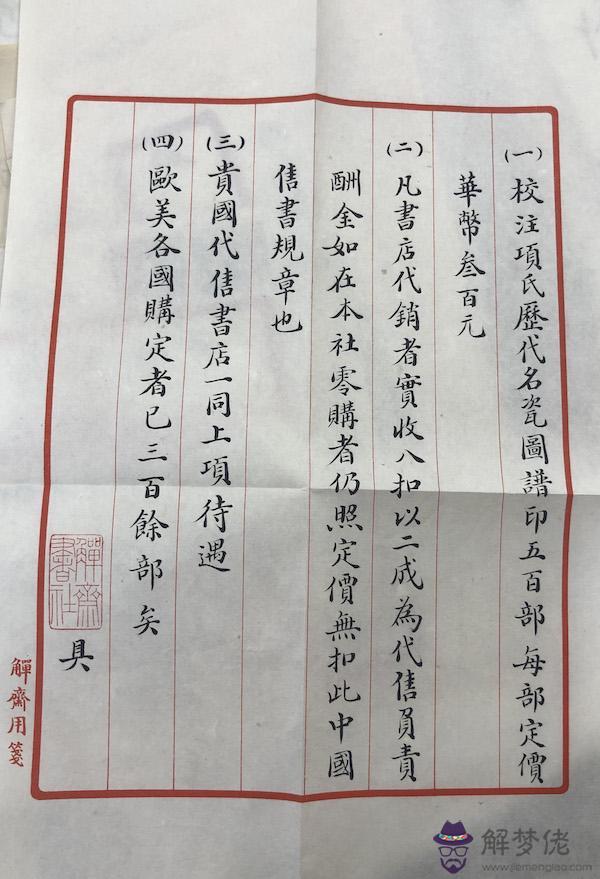 (一)校注項氏歷代名瓷圖譜印五百部每部定價
華幣叁百元
(二)凡書店代銷者實收八扣以二成為代售員責
酬金如在本社零購者仍照定價無扣此中國
售書規章也
(三)貴國代售書店一同上項待遇
(四)歐美各國購定者已三百餘部矣
觶齋書社
具
觶齋用箋
解梦佬
www.jiemenglao.com